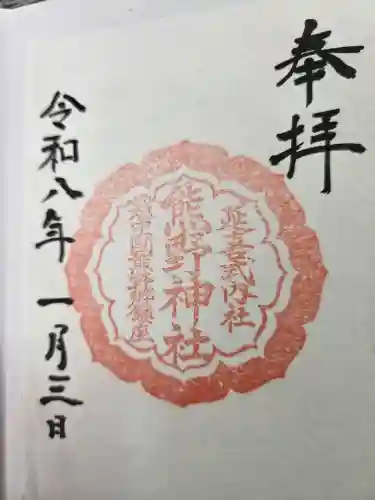 奉拝
延喜式内社
熊野神社
令和八年 一月三日